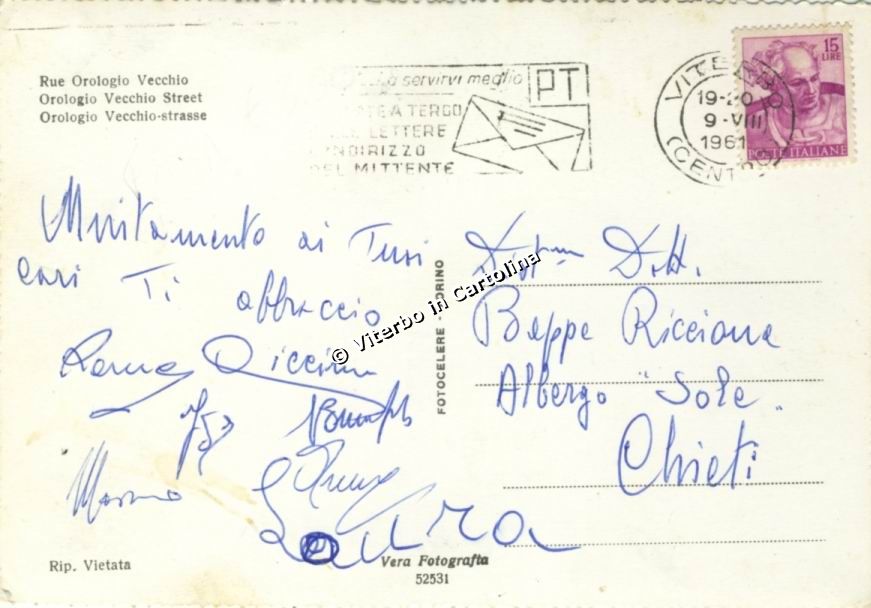 Rue Orologio Vecchio
Orologio Vecchio Street
Orologio Vecchio-strasse
a servirvi meglio
PT
A TERGO
LETTERE
INDIRIZZO
DEL MITTENTE
VITERBO
19-20
9-VIII
1961
(CENTRO)
15
LIRE
POSTE ITALIANE
Unitamente ai Tuoi
cari Ti abbraccio
Massimo
Laura
© Viterbo in Cartolina
FOTOCELERE - TORINO
Dott.
Beppe Riccione
Albergo "Sole"
Chieti
Rip. Vietata
Vera Fotografia
52531